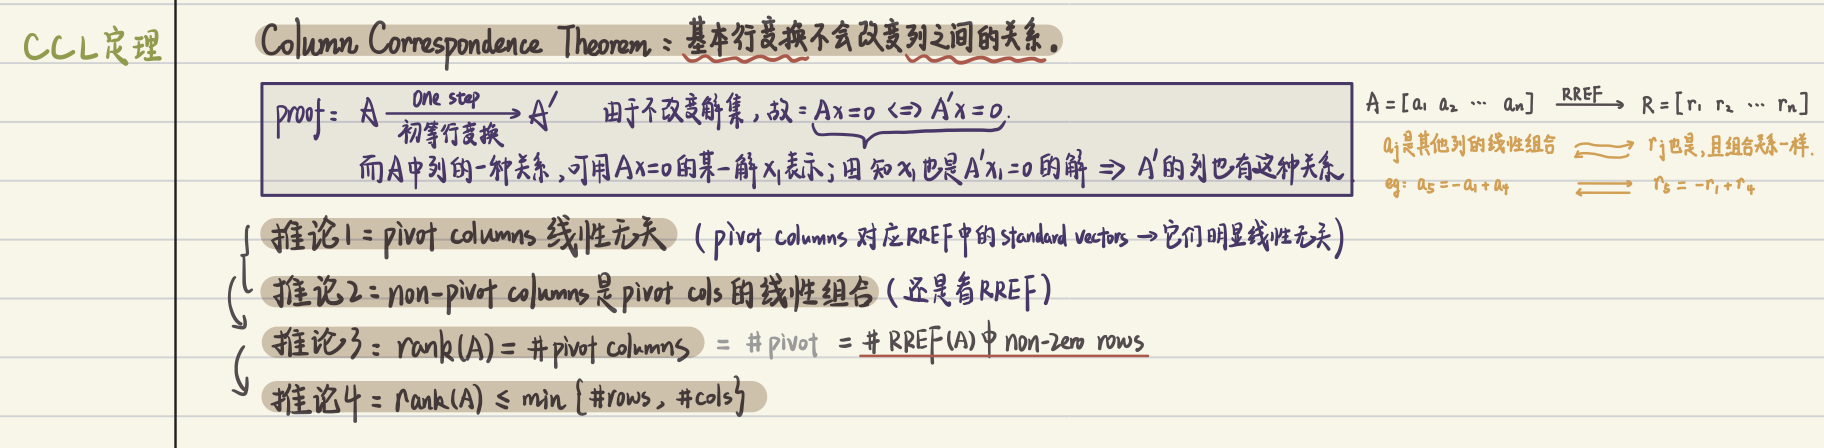 CCL定理
Column Correspondence Theorem：基本行变换不会改变列之间的关系.
proof： A —One step 初等行变换→ A′ 由于不改变解集，故：Ax=0 <=> A′x=0.
而A中列的一种关系，可用Ax=0的某一解x₁表示；由 知x₁也是A′x₁=0的解 => A′的列也有这种关系.
A=[a₁ a₂ ⋯ aₙ] —RREF→ R=[r₁ r₂ ⋯ rₙ]
aⱼ是其他列的线性组合 ⇌ rⱼ也是,且组合关系一样.
eg: a₅=-a₁+a₄ ⇌ r₅=-r₁+r₄
推论1：pivot columns 线性无关 （pivot columns 对应RREF中的standard vectors→它们明显线性无关）
推论2：non-pivot columns是pivot cols的线性组合（还是看RREF）
推论3：rank(A)=#pivot columns = #pivot = #RREF(A)中non-zero rows
推论4：rank(A) ≤ min {#rows, #cols}